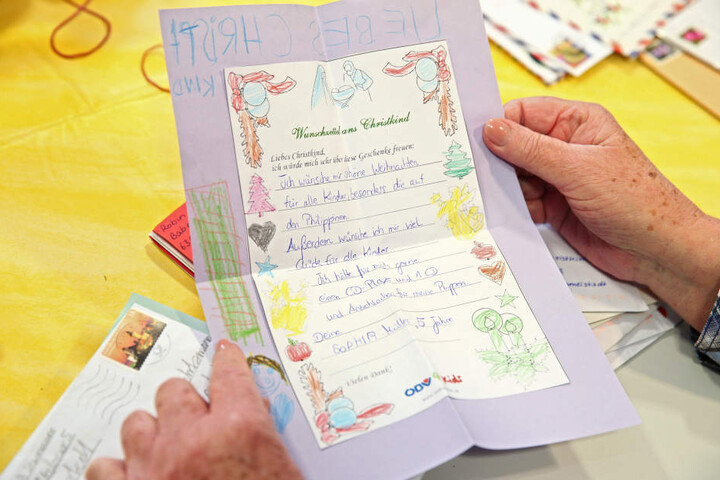 LIEBES CHRIST
KIND
Wunschzettel ans Christkind
Liebes Christkind,
ich würde mich sehr über diese Geschenke freuen:
Ich wünsche mir schöne Weihnachten
für alle Kinder, besonders die auf
den Philippinen.
Außerdem wünsche ich mir viel
Glück für alle Kinder
Ich hätte für mich gerne
einen CD-Player und 1 CD
und Anziehsachen für meine Puppen
Deine
SOPHIA 5 Jahre
Vielen Dank!
Robin